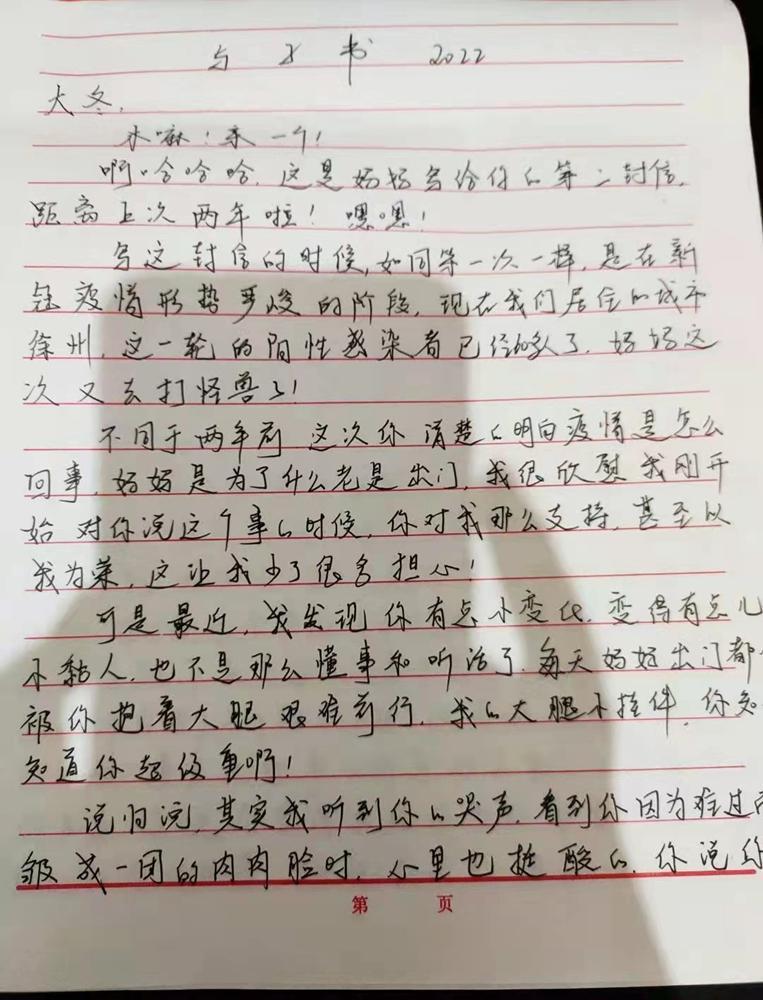 与子书 2022
大冬,
木嘛!来一个!
啊哈哈哈,这是妈妈写给你的第二封信,
距离上次两年啦!嗯嗯!
写这封信的时候,如同第一次一样,是在新
冠疫情形势严峻的阶段,现在我们居住的城市
徐州,这一轮的阳性感染者已经够多了,妈妈这
次又去打怪兽了!
不同于两年前 这次你 清楚的明白疫情是怎么
回事,妈妈是为了什么老是出门,我很欣慰我刚开
始对你说这个事的时候,你对我那么支持,甚至以
我为荣,这让我少了很多担心!
可是最近,我发现你有点小变化,变得有点儿
小黏人,也不是那么懂事和听话了,每天妈妈出门都
被你抱着大腿艰难前行,我的大腿小挂件,你知
知道你超级重啊!
说归说,其实我听到你的哭声,看到你因为难过而
皱成一团的肉肉脸时,心里也挺酸的,你说你
第 页